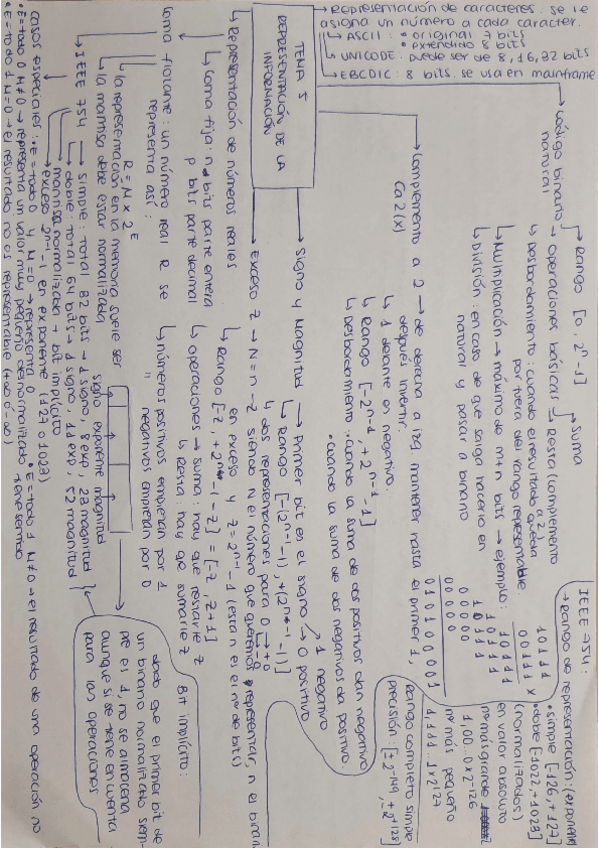 TEMA 5
REPRESENTACIÓN DE LA
INFORMACIÓN
→ Representación de caracteres: se le
asigna un número a cada caracter.
↳ ASCII: • original 7 bits
• extendido 8 bits
↳ UNICODE: puede ser de 8, 16, 32 bits
↳ EBCDIC: 8 bits. se usa en mainframe
código binario
natural
→ Rango [0, 2ⁿ-1]
→ operaciones básicas → Suma
↳ Resta (complemento
a 2)
↳ Desbordamiento: cuando el resultado queda
por fuera del rango representable
↳ Multiplicación → máximo de m+n bits → ejemplo:
↳ División: en caso de que salga hacerlo en
natural y pasar a binario
10111
01111 x
10111
10111
10111
10111
00000
0101011001
Complemento a 2
Ca2(x)
→ de derecha a izq mantener hasta el primer 1,
después invertir.
↳ 1 delante en negativo.
↳ Rango [-2ⁿ⁻¹, +2ⁿ⁻¹-1]
↳ Desbordamiento • cuando la suma de dos positivos dan negativo
• cuando la suma de dos negativos da positivo.
→ Signo y Magnitud → Primer bit en el signo → 0 positivo
1 negativo
↳ Rango [-(2ⁿ⁻¹-1), +(2ⁿ⁻¹-1)]
↳ dos representaciones para 0 → +0
-0
→ Exceso Z → N = n - Z siendo N el número que queremos representar, n el binario
en exceso y Z = 2ⁿ⁻¹-1 (esta n es el nº de bits)
↳ Rango [-Z, +2ⁿ-1-Z] = [-Z, Z+1]
↳ operaciones → suma: hay que restarle Z
↳ Resta: hay que sumarle Z
↳ números positivos empiezan por 1
" negativos empiezan por 0
↳ Representación de números reales
↳ Coma fija: n bits parte entera
p bits parte decimal
Coma flotante: un número real R se
representa así:
R = M x 2ᴱ
↳ la representación en la memoria suele ser
↳ la mantisa debe estar normalizada
signo exponente magnitud
↳ IEEE 754 → simple: total 32 bits → 1 signo, 8 exp, 23 magnitud
→ doble: total 64 bits → 1 signo, 11 exp, 52 magnitud
→ mantisa normalizada → bit implícito
→ exceso 2ⁿ⁻¹-1 en exponente (127 o 1023)
Bit implícito:
dado que el primer bit de
un binario normalizado siem-
pre es 1, no se almacena
aunque si se tiene en cuenta
para las operaciones
Casos especiales: • E=todo 0 y M=0 → representa 0
• E=todo 1 M≠0 → el resultado de una operación no
tiene sentido
• E=todo 0 M≠0 → representa un valor muy pequeño desnormalizado
• E=todo 1 M=0 → el resultado no es representable (+∞ o -∞)
IEEE 754:
→ Rango de representación: (exponente)
• simple [-126, +127]
• doble [-1022, +1023]
(normalizados)
en valor absoluto
nº más grande
1,00...0 x 2⁻¹²⁶
nº más pequeño
1,111...1 x 2¹²⁷
Rango completo simple
precisión: [±2⁻¹⁴⁹, ±2⁺¹²⁸]